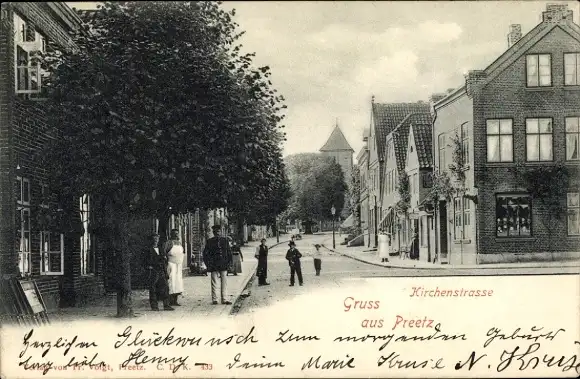 Kirchenstrasse
Gruss
aus Preetz
Herzlichen Glückwunsch zum morgenden Geburts
tag liebe Henny – deine Marie Kruse N. Kruse
Verlag von Fr. Voigt, Preetz. C. D. K. 433